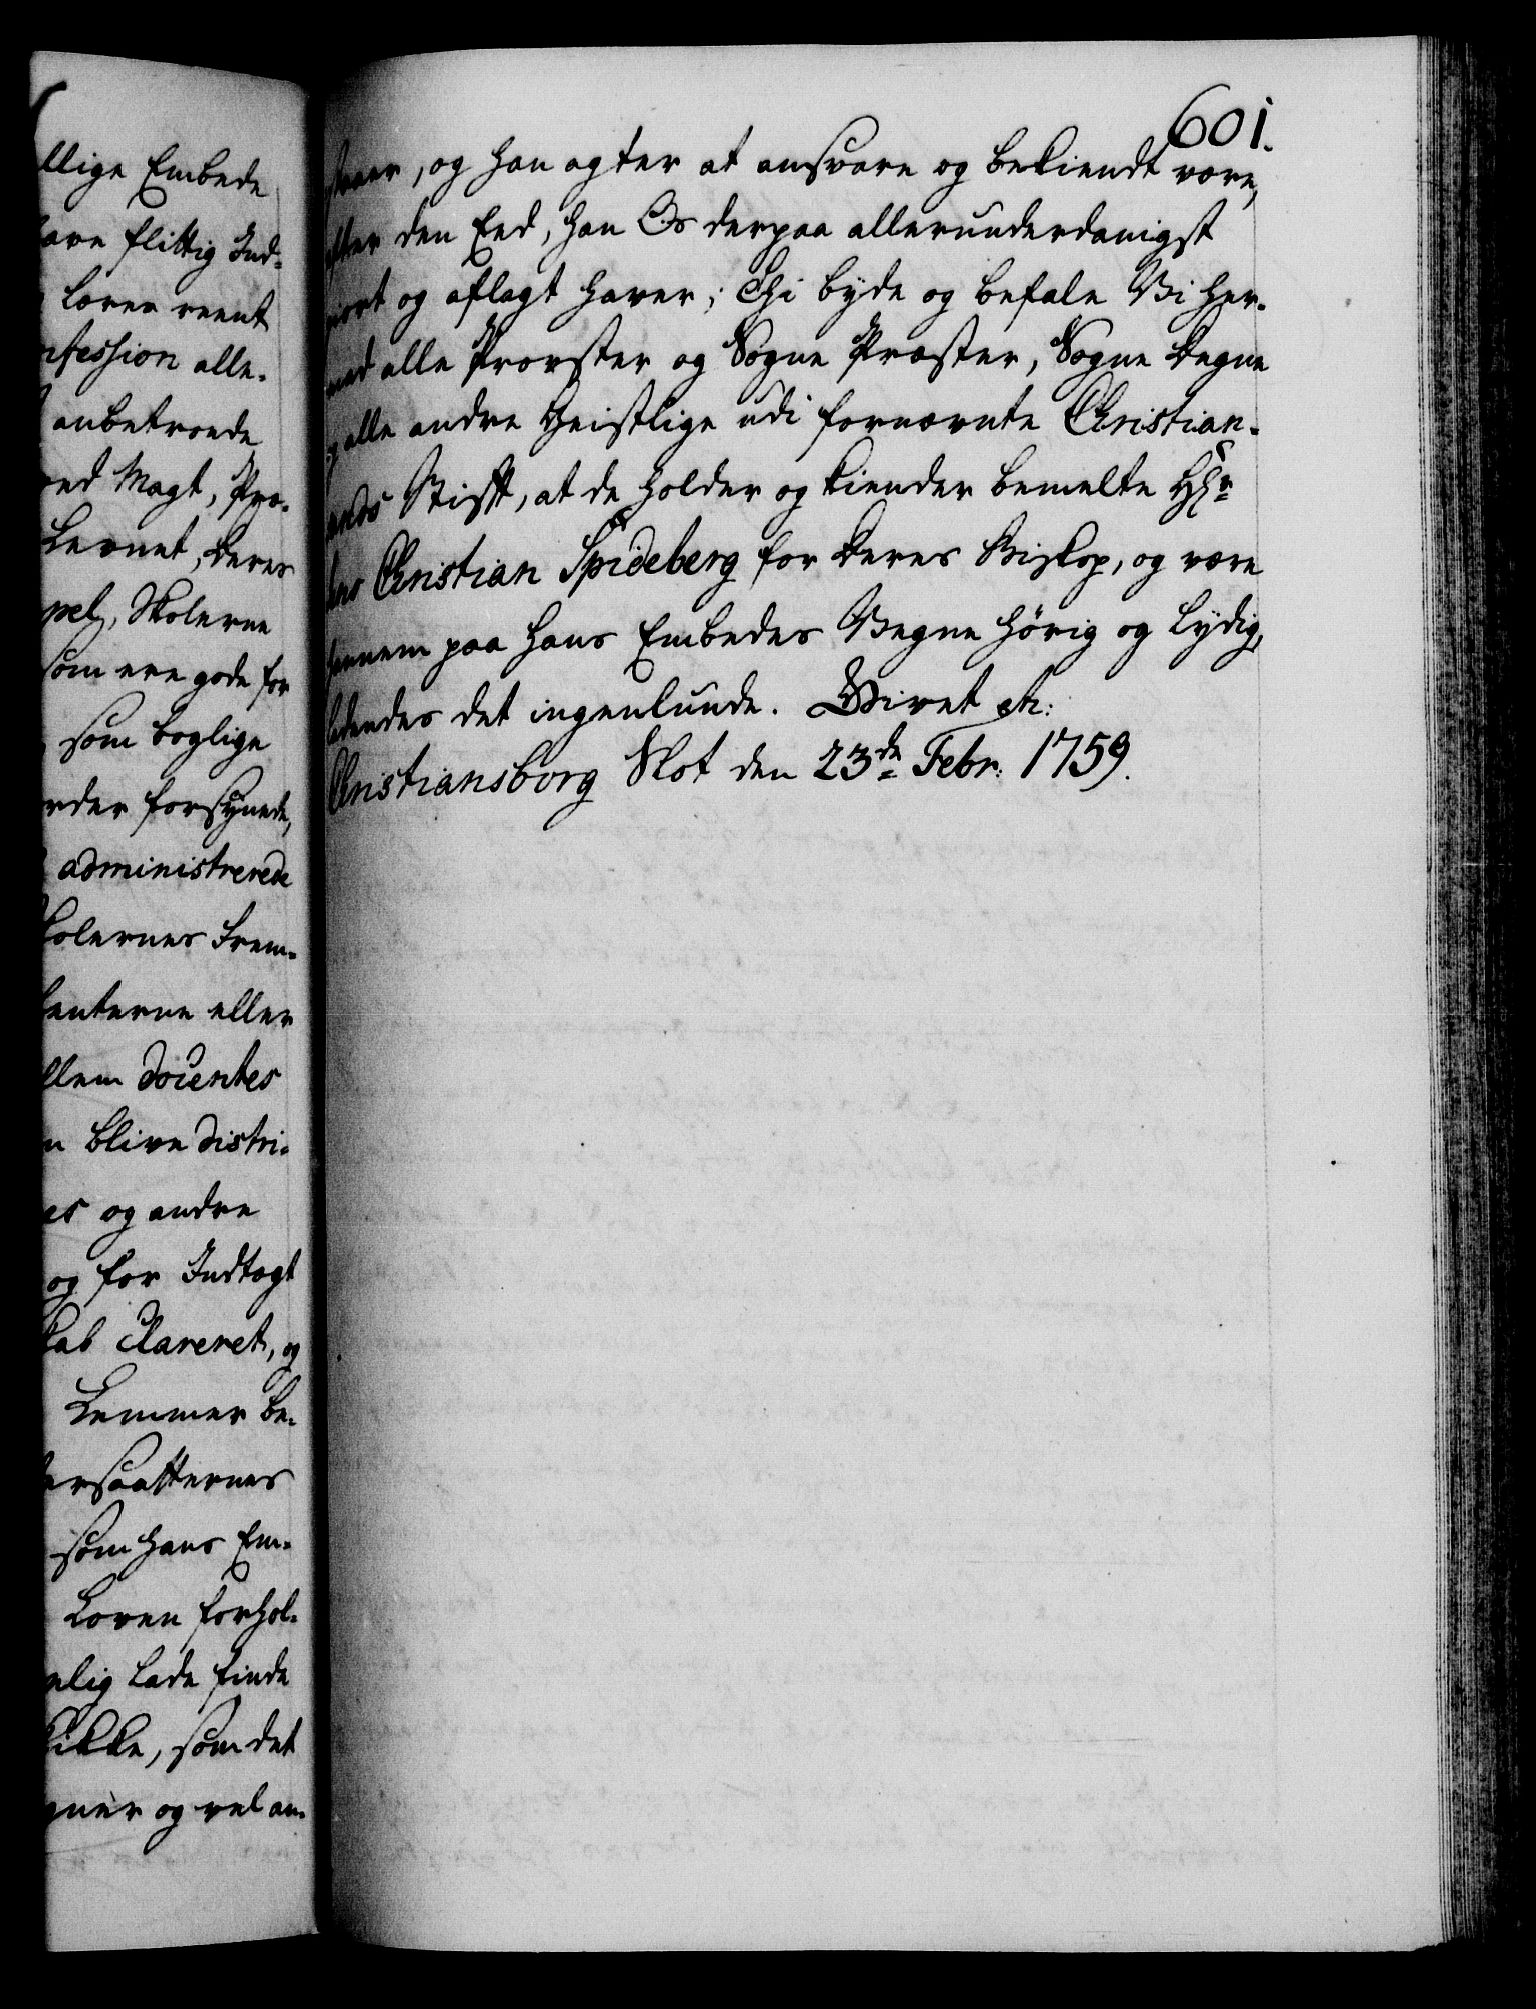 llige Embede
have flittig Ind-
lærer reent
nfession alle-
anbetroede
ved Magt, Præ-
Lærnet, deres
pel, Skolerne
som ere gode for
som boglige
rder forsynede,
administrerede
kolernes Frem-
lenterne eller
llem docentes
n blive distri-
es og andre
og for Indtægt
kab clareret, og
Lemmer be-
dersaatternes
som hans Em-
Loven forhol-
nelig lade finde
Kikke, som det
gner og vel an-
601.
staaer, og han agter at ansvare og bekiendt være,
efter den Eed, han Os derpaa allerunderdanigst
giort og aflagt haver; Thi byde og befale Vi her-
med alle Provster og Sogne Præster, Sogne Degne
og alle andre Geistlige udi fornævnte Christian-
sands Stift, at de holder og kiender bemelte Hr
Jens Christian Spideberg for deres Biskop, og være
hannem paa hans Embedes Vegne hørig og lydig,
ladendes det ingenlunde. Givet etc:
Christiansborg Slot den 23de Febr: 1759.